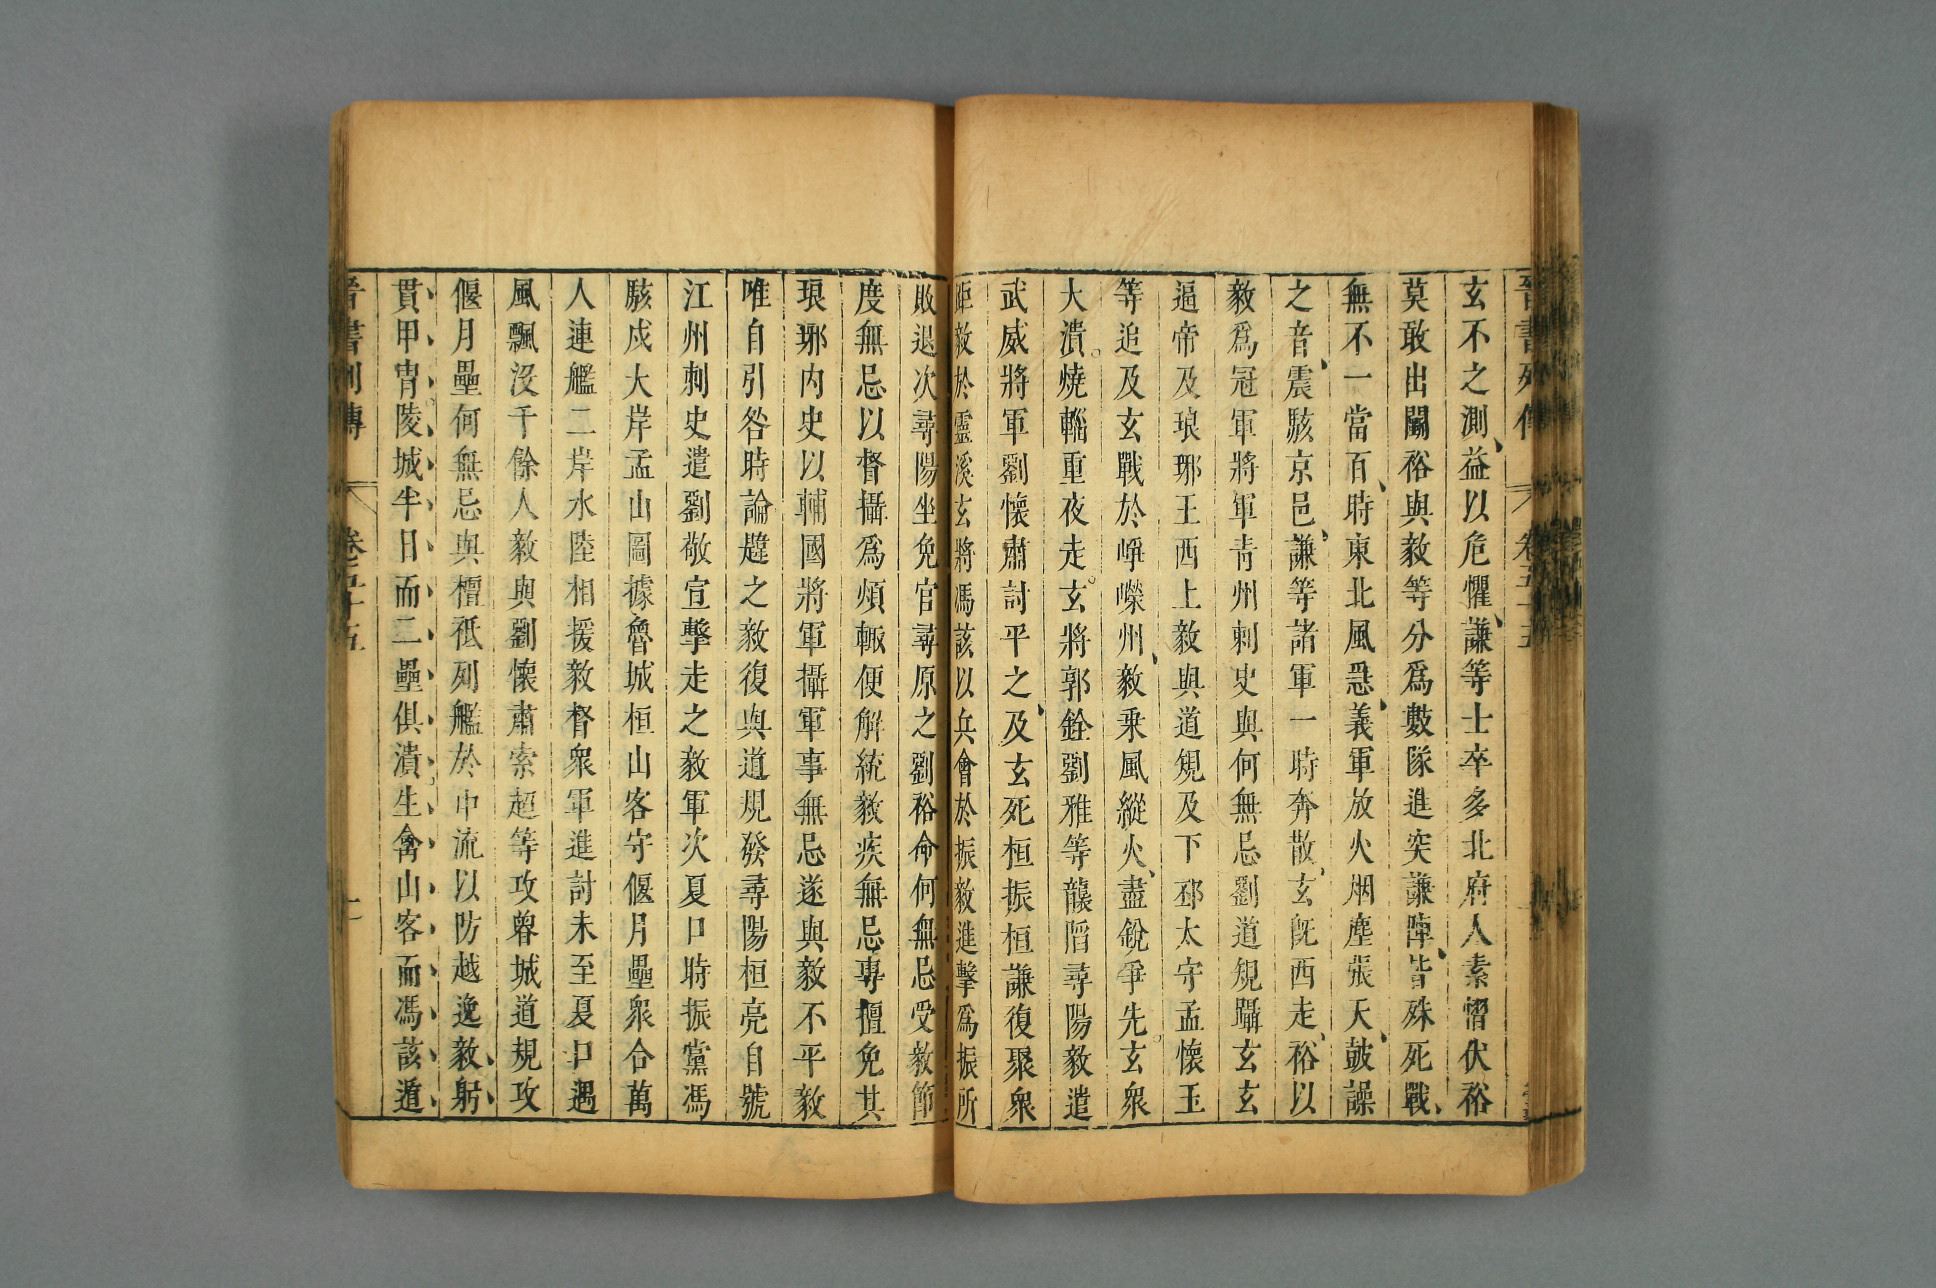 晉書列傳 卷五十五
玄不之測益以危懼謙等士卒多北府人素慴伏裕
莫敢出鬭裕與毅等分爲數隊進突謙陣皆殊死戰
無不一當百時東北風急義軍放火烟塵張天皷譟
之音震駭京邑謙等諸軍一時奔散玄旣西走裕以
毅爲冠軍將軍青州刺史與何無忌劉道規躡玄玄
逼帝及琅琊王西上毅與道規及下邳太守孟懷玉
等追及玄戰於崢嶸州毅乘風縱火盡銳爭先玄衆
大潰燒輜重夜走玄將郭銓劉雅等襲陷尋陽毅遣
武威將軍劉懷肅討平之及玄死桓振桓謙復聚衆
距毅於靈溪玄將馮該以兵會於振毅進擊爲振所
敗退次尋陽坐免官尋原之劉裕命何無忌受毅節
度無忌以督攝爲煩輙便解統毅疾無忌專擅免其
琅琊内史以輔國將軍攝軍事無忌遂與毅不平毅
唯自引咎時論韙之毅復與道規發尋陽桓亮自號
江州刺史遣劉敬宣擊走之毅軍次夏口時振黨馮
駭戍大岸孟山圖據魯城桓山客守偃月壘衆合萬
人連艦二岸水陸相援毅督衆軍進討未至夏口遇
風飄沒千餘人毅與劉懷肅索超等攻魯城道規攻
偃月壘何無忌與檀祗列艦於中流以防越逸毅躬
貫甲冑陵城半日而二壘俱潰生禽山客而馮該遁
晉書列傳 卷五十五 十